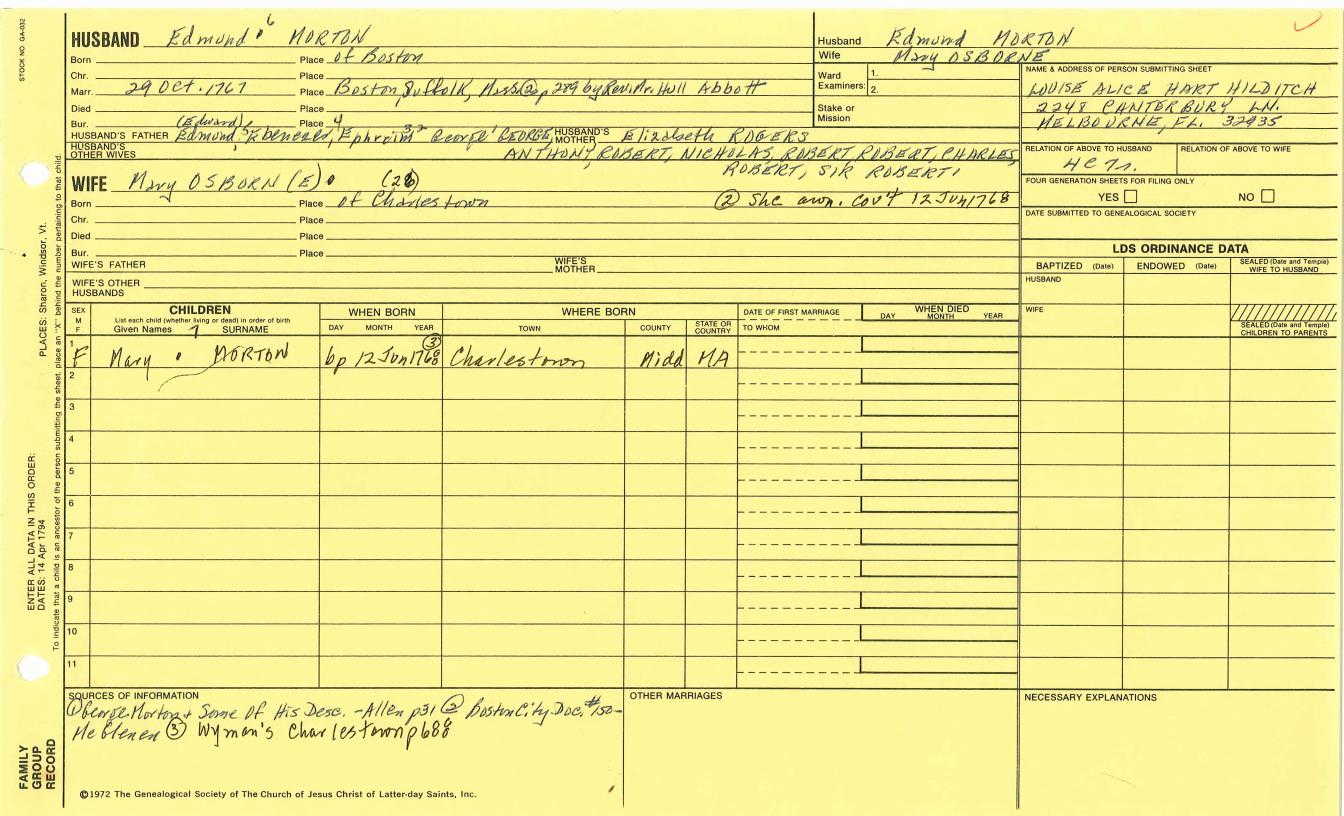 STOCK NO. GA-032
HUSBAND Edmund 6 MORTON
Born Place of Boston
Chr. Place
Marr. 29 OCT. 1767 Place Boston, Suffolk, Mass② p 289 by Rev. Mr. Hull Abbott
Died Place
Bur. (Edward) Place 4
HUSBAND'S FATHER Edmund, 5 Ebenezer, Ephraim 3,2 George 1 GEORGE, HUSBAND'S MOTHER Elizabeth ROGERS
HUSBAND'S OTHER WIVES ANTHONY, ROBERT, NICHOLAS, ROBERT, ROBERT, CHARLES,
ROBERT, SIR ROBERT,
WIFE Mary OSBORN (E) (28)
Born Place of Charlestown ② She own. Cov't 12 Jun 1768
Chr. Place
Died Place
Bur. Place
WIFE'S FATHER WIFE'S MOTHER
WIFE'S OTHER HUSBANDS
Husband Edmund MORTON
Wife Mary OSBORNE
Ward Examiners: 1.
2.
Stake or Mission
NAME & ADDRESS OF PERSON SUBMITTING SHEET
LOUISE ALICE HART HILDITCH
2248 CANTERBURY LN.
MELBOURNE, FL. 32935
RELATION OF ABOVE TO HUSBAND RELATION OF ABOVE TO WIFE
FOUR GENERATION SHEETS FOR FILING ONLY
YES NO
DATE SUBMITTED TO GENEALOGICAL SOCIETY
LDS ORDINANCE DATA
BAPTIZED (Date) ENDOWED (Date) SEALED (Date and Temple) WIFE TO HUSBAND
HUSBAND
WIFE
SEALED (Date and Temple) CHILDREN TO PARENTS
SEX M F CHILDREN WHEN BORN WHERE BORN DATE OF FIRST MARRIAGE WHEN DIED
List each child (whether living or dead) in order of birth
Given Names 7 SURNAME DAY MONTH YEAR TOWN COUNTY STATE OR COUNTRY TO WHOM DAY MONTH YEAR
1 F Mary MORTON bp 12 Jun 1768 ③ Charlestown Midd MA
2
3
4
5
6
7
8
9
10
11
SOURCES OF INFORMATION
① George Morton & Some of His Desc. - Allen p31 ② Boston City Doc. #150 -
McGlenen ③ Wyman's Charlestown p688
OTHER MARRIAGES
NECESSARY EXPLANATIONS
©1972 The Genealogical Society of The Church of Jesus Christ of Latter-day Saints, Inc.
FAMILY GROUP RECORD
ENTER ALL DATA IN THIS ORDER:
DATES: 14 Apr 1794 PLACES: Sharon, Windsor, Vt.
To indicate that a child is an ancestor of the person submitting the sheet, place an "X" behind the number pertaining to that child.